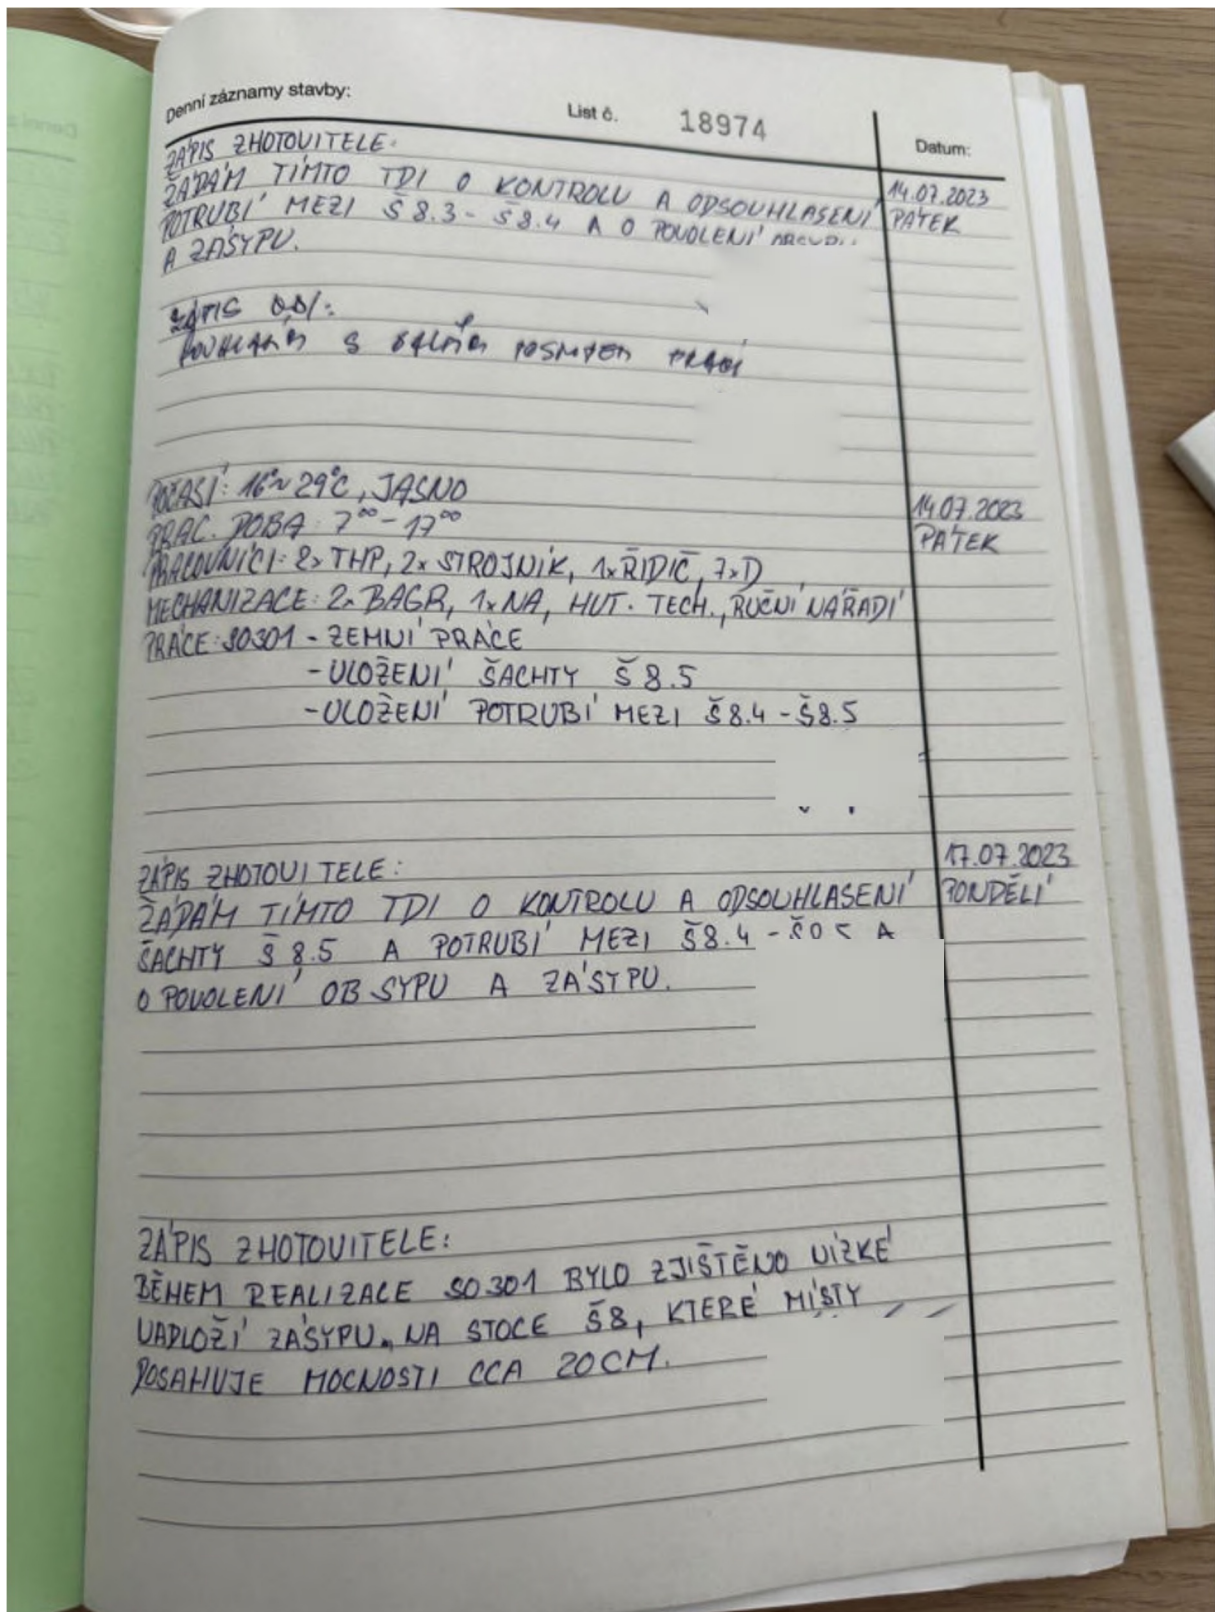 Denní záznamy stavby: List č. 18974 Datum:
ZÁPIS ZHOTOVITELE:
ŽÁDÁM TÍMTO TDI O KONTROLU A ODSOUHLASENÍ 14.07.2023
POTRUBÍ MEZI Š 8.3 - Š 8.4 A O POVOLENÍ PÁTEK
A ZÁSYPU.
ZÁPIS
S PRACÍ
POČASÍ: 16°~ 29°C, JASNO 14.07.2023
PRAC. DOBA: 7⁰⁰ - 17⁰⁰ PÁTEK
PRACOVNÍCI: 2x THP, 2x STROJNÍK, 1x ŘIDIČ, 7x D
MECHANIZACE: 2x BAGR, 1x NA, HUT. TECH., RUČNÍ NÁŘADÍ
PRÁCE: SO301 - ZEMNÍ PRÁCE
- ULOŽENÍ ŠACHTY Š 8.5
- ULOŽENÍ POTRUBÍ MEZI Š 8.4 - Š8.5
ZÁPIS ZHOTOVITELE: 17.07.2023
ŽÁDÁM TÍMTO TDI O KONTROLU A ODSOUHLASENÍ PONDĚLÍ
ŠACHTY Š 8.5 A POTRUBÍ MEZI Š8.4 - A
O POVOLENÍ OBSYPU A ZÁSYPU.
ZÁPIS ZHOTOVITELE:
BĚHEM REALIZACE SO301 BYLO ZJIŠTĚNO NÍZKÉ
NADLOŽÍ ZÁSYPU NA STOCE Š8, KTERÉ MÍSTY
DOSAHUJE MOCNOSTI CCA 20CM.